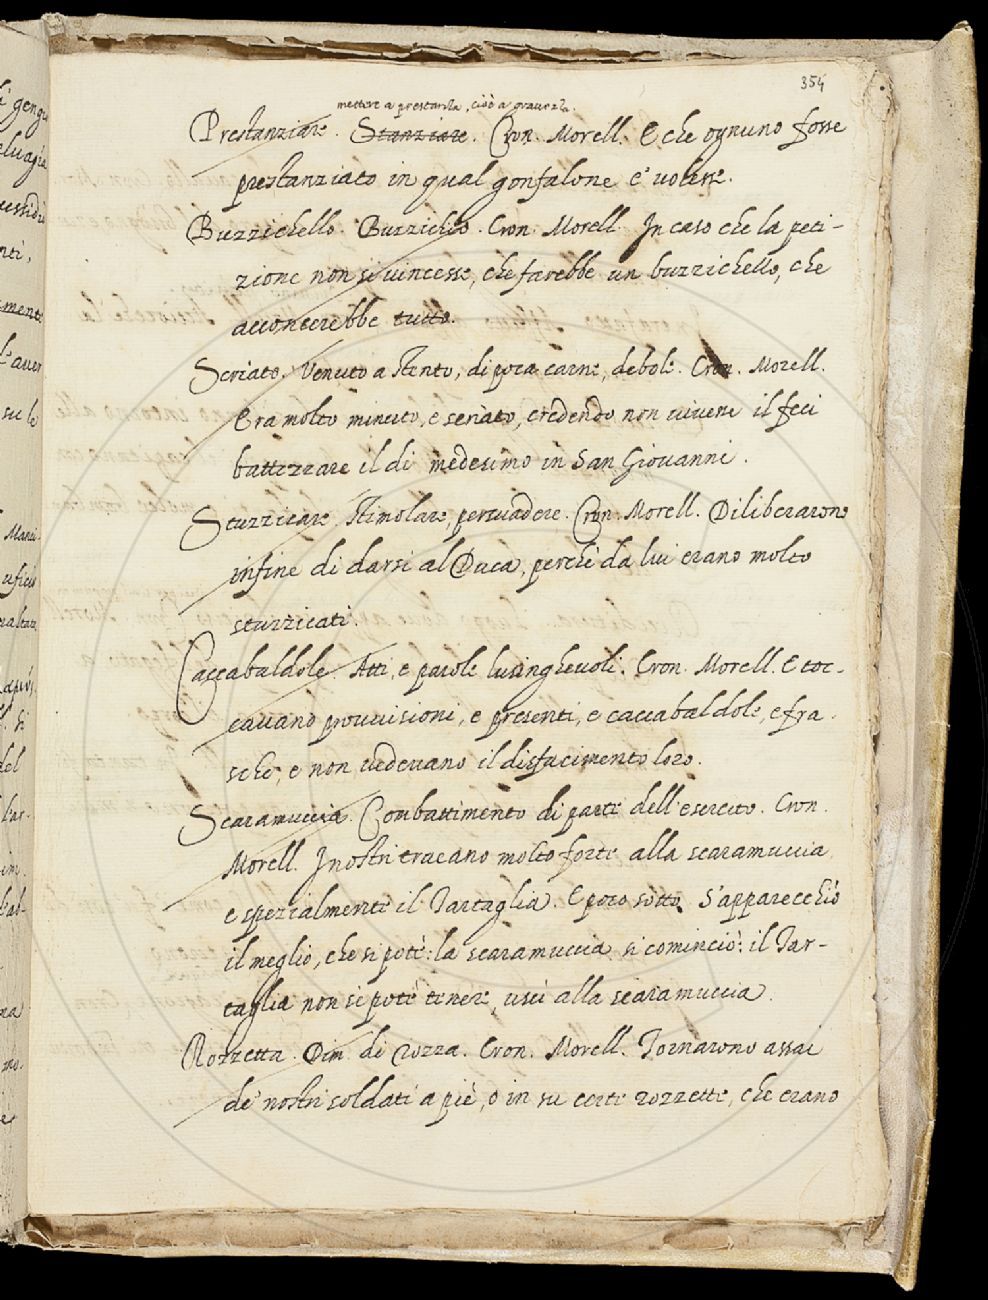 354
mettere a prestanza, cioè a gravezza.
Prestanziare. Stanziare. Cron. Morell. E che ognuno fosse
prestanziato in qual gonfalone e' volesse.
Buzzichello. Buzzichio. Cron. Morell. In caso che la peti-
zione non si vincesse, che farebbe un buzzichello, che
acconcerebbe tutto.
Scriato. Venuto a stento, di poca carne, debole. Cron. Morell.
Era molto minuto, e scriato, credendo non vivere il feci
battezzare il dì medesimo in San Giovanni.
Stuzzicare. Stimolare, persuadere. Cron. Morell. Diliberarono
infine di darsi al Duca, perchè da lui erano molto
stuzzicati.
Caccabaldole. Atti, e parole lusinghevoli. Cron. Morell. E toc-
cavano provvisioni, e presenti, e caccabaldole, e fra
sche, e non vedevano il disfacimento loro.
Scaramuccia. Combattimento di parti dell'esercito. Cron.
Morell. I nostri traeano molto forte alla scaramuccia,
e spezialmente il Tartaglia. E poco sotto. S'apparecchiò
il meglio, che si potè: la scaramuccia si cominciò: il Tar-
taglia non si potè tenere, uscì alla scaramuccia.
Rozzetta. Dim. di rozza. Cron. Morell. Tornarono assai
de' nostri soldati a piè, o in su certe rozzette, che erano